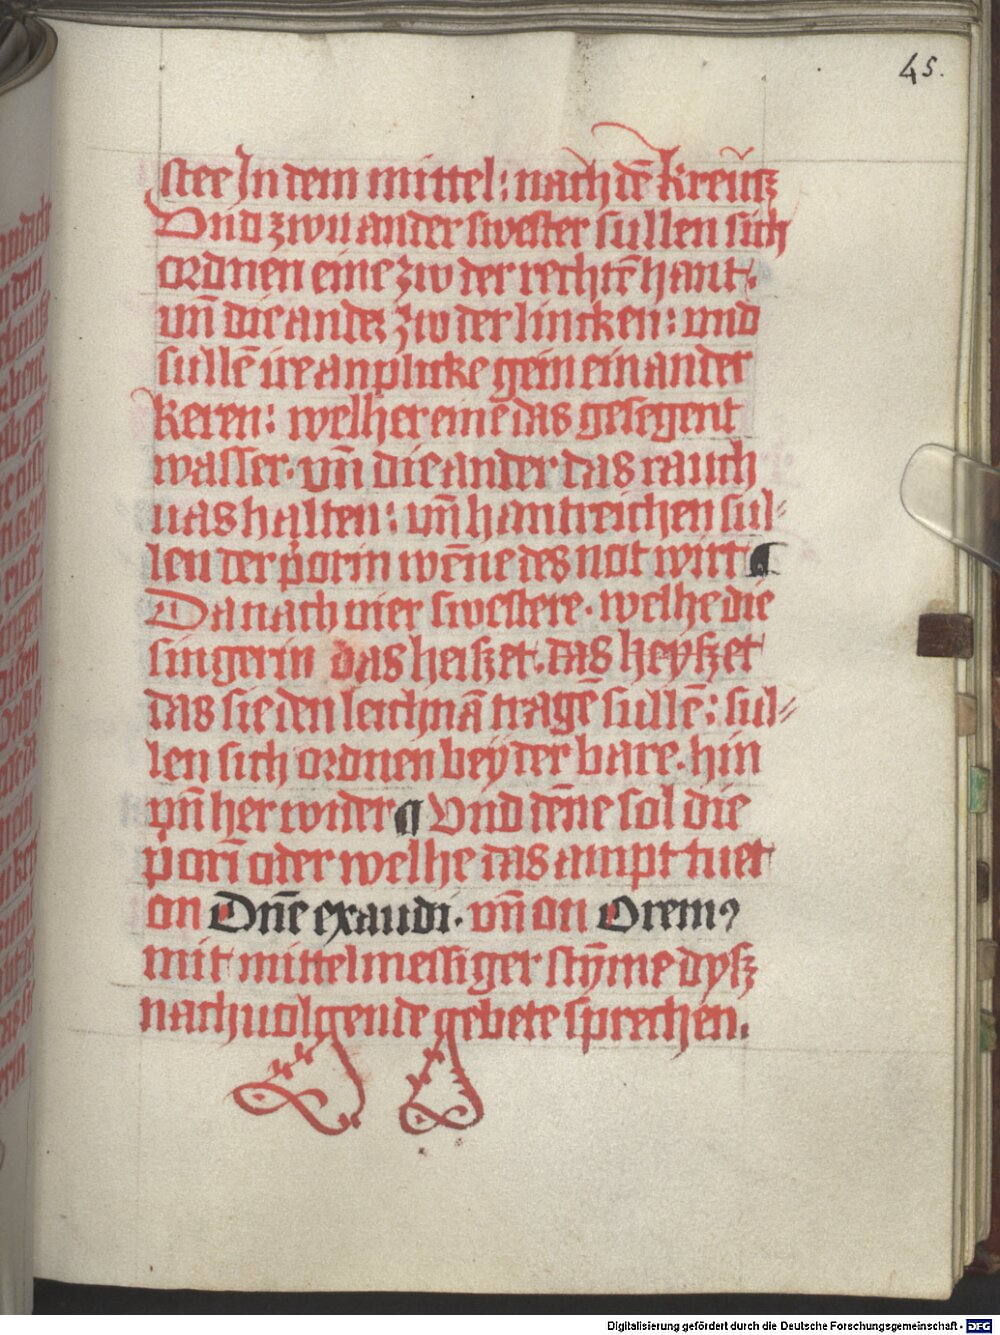 45.
stee In dem mittel: nach dē kreücz
Vnd zwu ander swester sullen sich
ordnen eine zw der rechtē hant.
vn̄ die ander zw der lincken: vnd
sullē ire anplicke gein einander
keren: welher eine das gesegent
wasser. vn̄ die ander das rauch
uas halten: vn̄ hantreichen sul⸗
len der p̄orin wēne des not wirt ¶
Da nach vier swestere. welhe die
singerin das heiszet. das heyszet
das sie den leichnā tragē sullē: sul⸗
len sich ordnen bey der bare. hin
vn̄ her wider ¶ Vnd dēne sol die
p̄orī oder welhe das ampt tuet
on Dn̄e exaudi. vn̄ on Oremꝰ
mit mittelmessiger stȳme dysz
nachuolgende gebete sprechen.
Digitalisierung gefördert durch die Deutsche Forschungsgemeinschaft - DFG